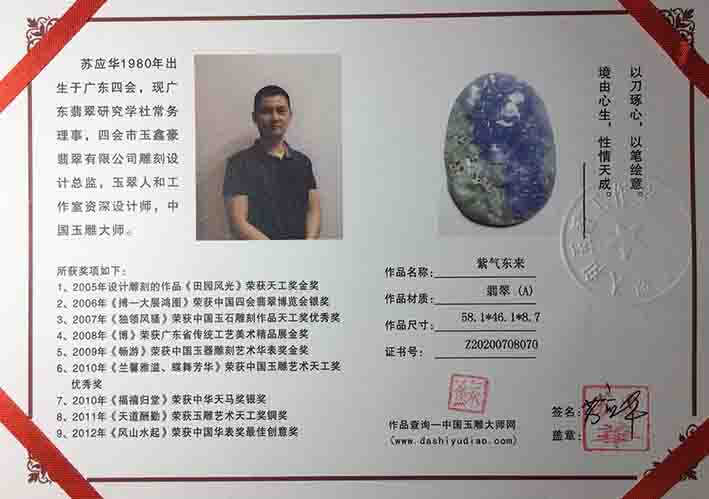 苏应华1980年出
生于广东四会，现广
东翡翠研究学社常务
理事，四会市玉鑫豪
翡翠有限公司雕刻设
计总监，玉翠人和工
作室资深设计师，中
国玉雕大师。
以刀琢心，以笔绘意。
境由心生，性情天成。
所获奖项如下：
1、2005年设计雕刻的作品《田园风光》荣获天工奖金奖
2、2006年《搏一大展鸿图》荣获中国四会翡翠博览会银奖
3、2007年《独领风骚》荣获中国玉石雕刻作品天工奖优秀奖
4、2008年《博》荣获广东省传统工艺美术精品展金奖
5、2009年《畅游》荣获中国玉器雕刻艺术华表奖金奖
6、2010年《兰馨雅溢、蝶舞芳华》荣获中国玉雕艺术天工奖
优秀奖
7、2010年《福禧归堂》荣获中华天马奖银奖
8、2011年《天道酬勤》荣获玉雕艺术天工奖铜奖
9、2012年《风山水起》荣获中国华表奖最佳创意奖
作品名称：紫气东来
作品材质：翡翠（A）
作品尺寸：58.1*46.1*8.7
证书号：Z20200708070
作品查询—中国玉雕大师网
(www.dashiyudiao.com)
签名：
盖章：